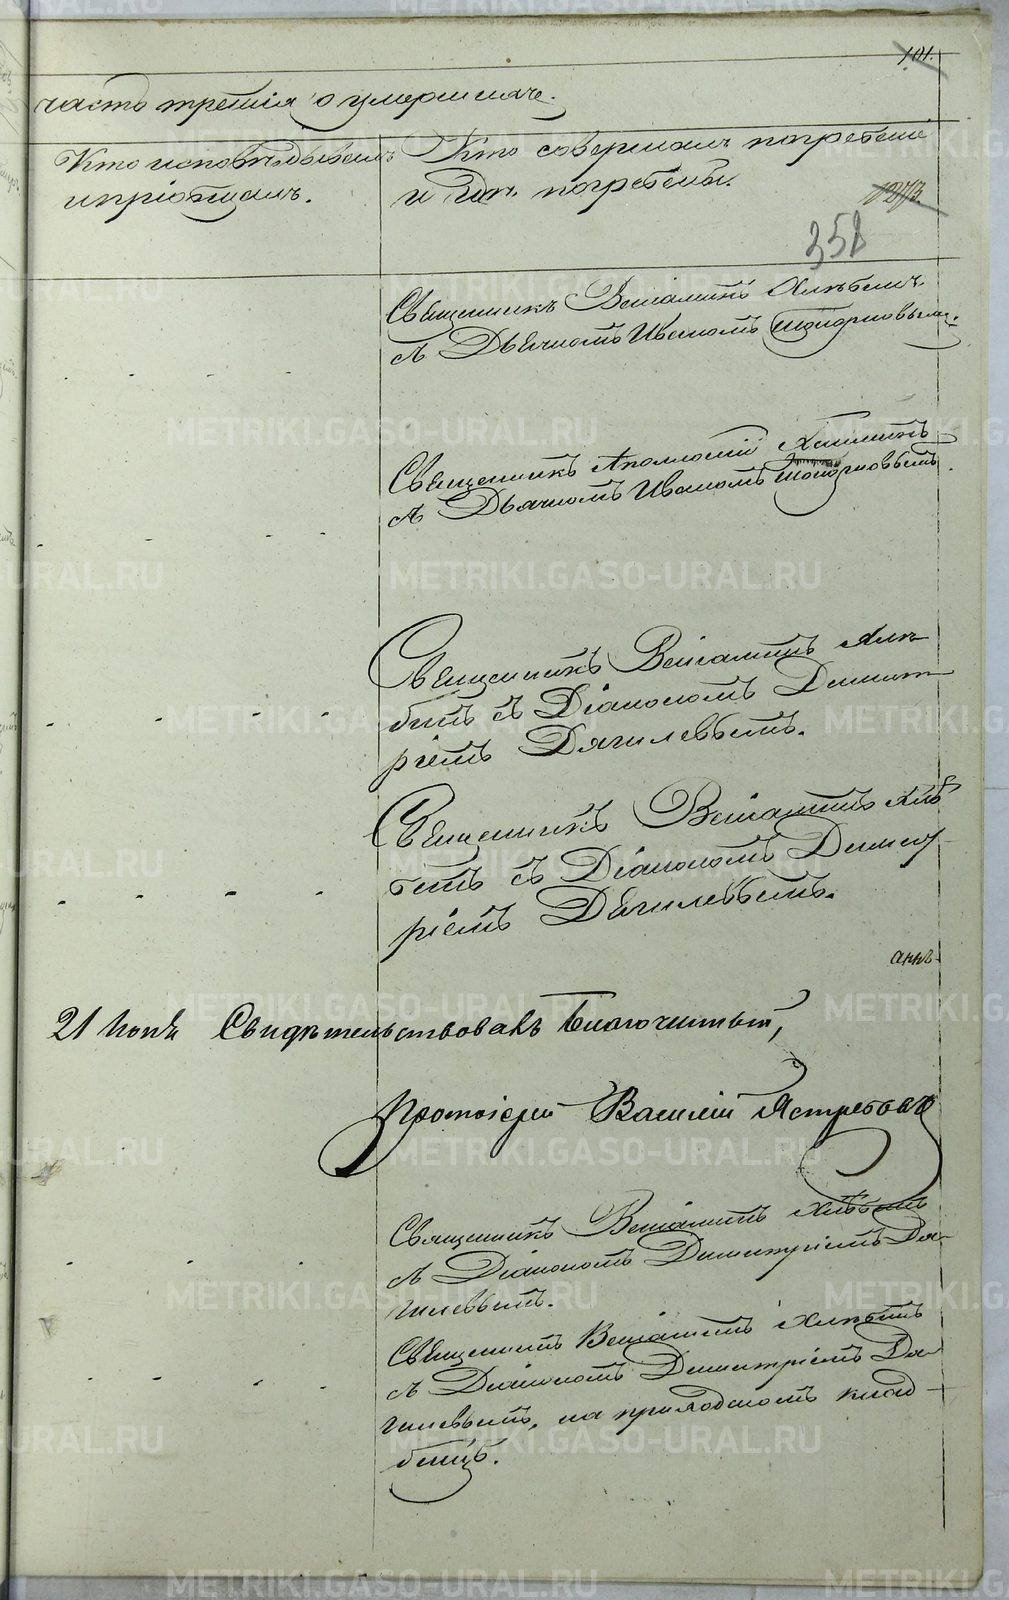 101.
часть третія о умершихъ.
Кто исповѣдывалъ
и пріобщалъ.
Кто совершалъ погребеніе
и гдѣ погребены.
1273.
358
Священникъ Веніаминъ Хлѣбинъ
съ Дьячкомъ Иваномъ
Священникъ Аполлоній
съ Дьячкомъ Иваномъ
Священникъ Веніаминъ Хлѣ-
бинъ съ Діакономъ Димит-
ріемъ Дягилевымъ.
Священникъ Веніаминъ Хлѣ-
бинъ съ Діакономъ Димит-
ріемъ Дягилевымъ.
21 Іюня Свидѣтельствовалъ Благочинный,
Протоіерей Василій Ястребовъ
Священникъ Веніаминъ Хлѣбинъ
съ Діакономъ Димитріемъ Дя-
гилевымъ.
Священникъ Веніаминъ Хлѣбинъ
съ Діакономъ Димитріемъ Дя-
гилевымъ, на приходскомъ клад-
бищѣ.
METRIKI.GASO-URAL.RU